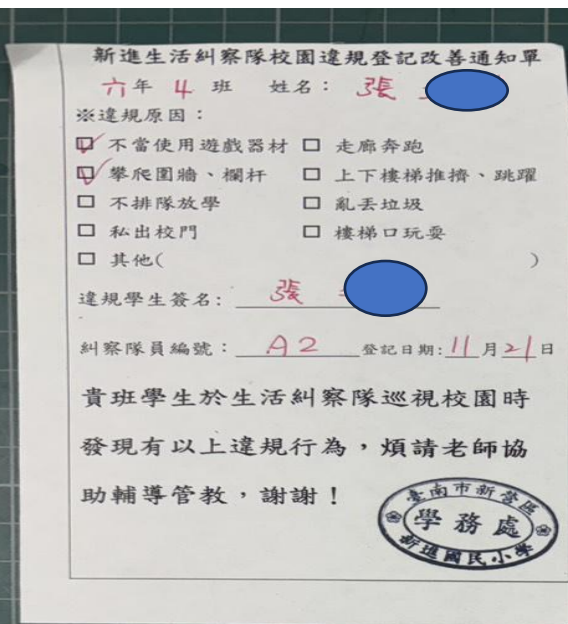 新進生活糾察隊校園違規登記改善通知單
六年 4 班 姓名： 張
※違規原因：
☑ 不當使用遊戲器材 □ 走廊奔跑
☑ 攀爬圍牆、欄杆 □ 上下樓梯推擠、跳躍
□ 不排隊放學 □ 亂丟垃圾
□ 私出校門 □ 樓梯口玩耍
□ 其他( )
違規學生簽名: 張
糾察隊員編號： A2 登記日期: 11 月 21 日
貴班學生於生活糾察隊巡視校園時
發現有以上違規行為，煩請老師協
助輔導管教，謝謝！
臺南市新營區
學務處
新進國民小學